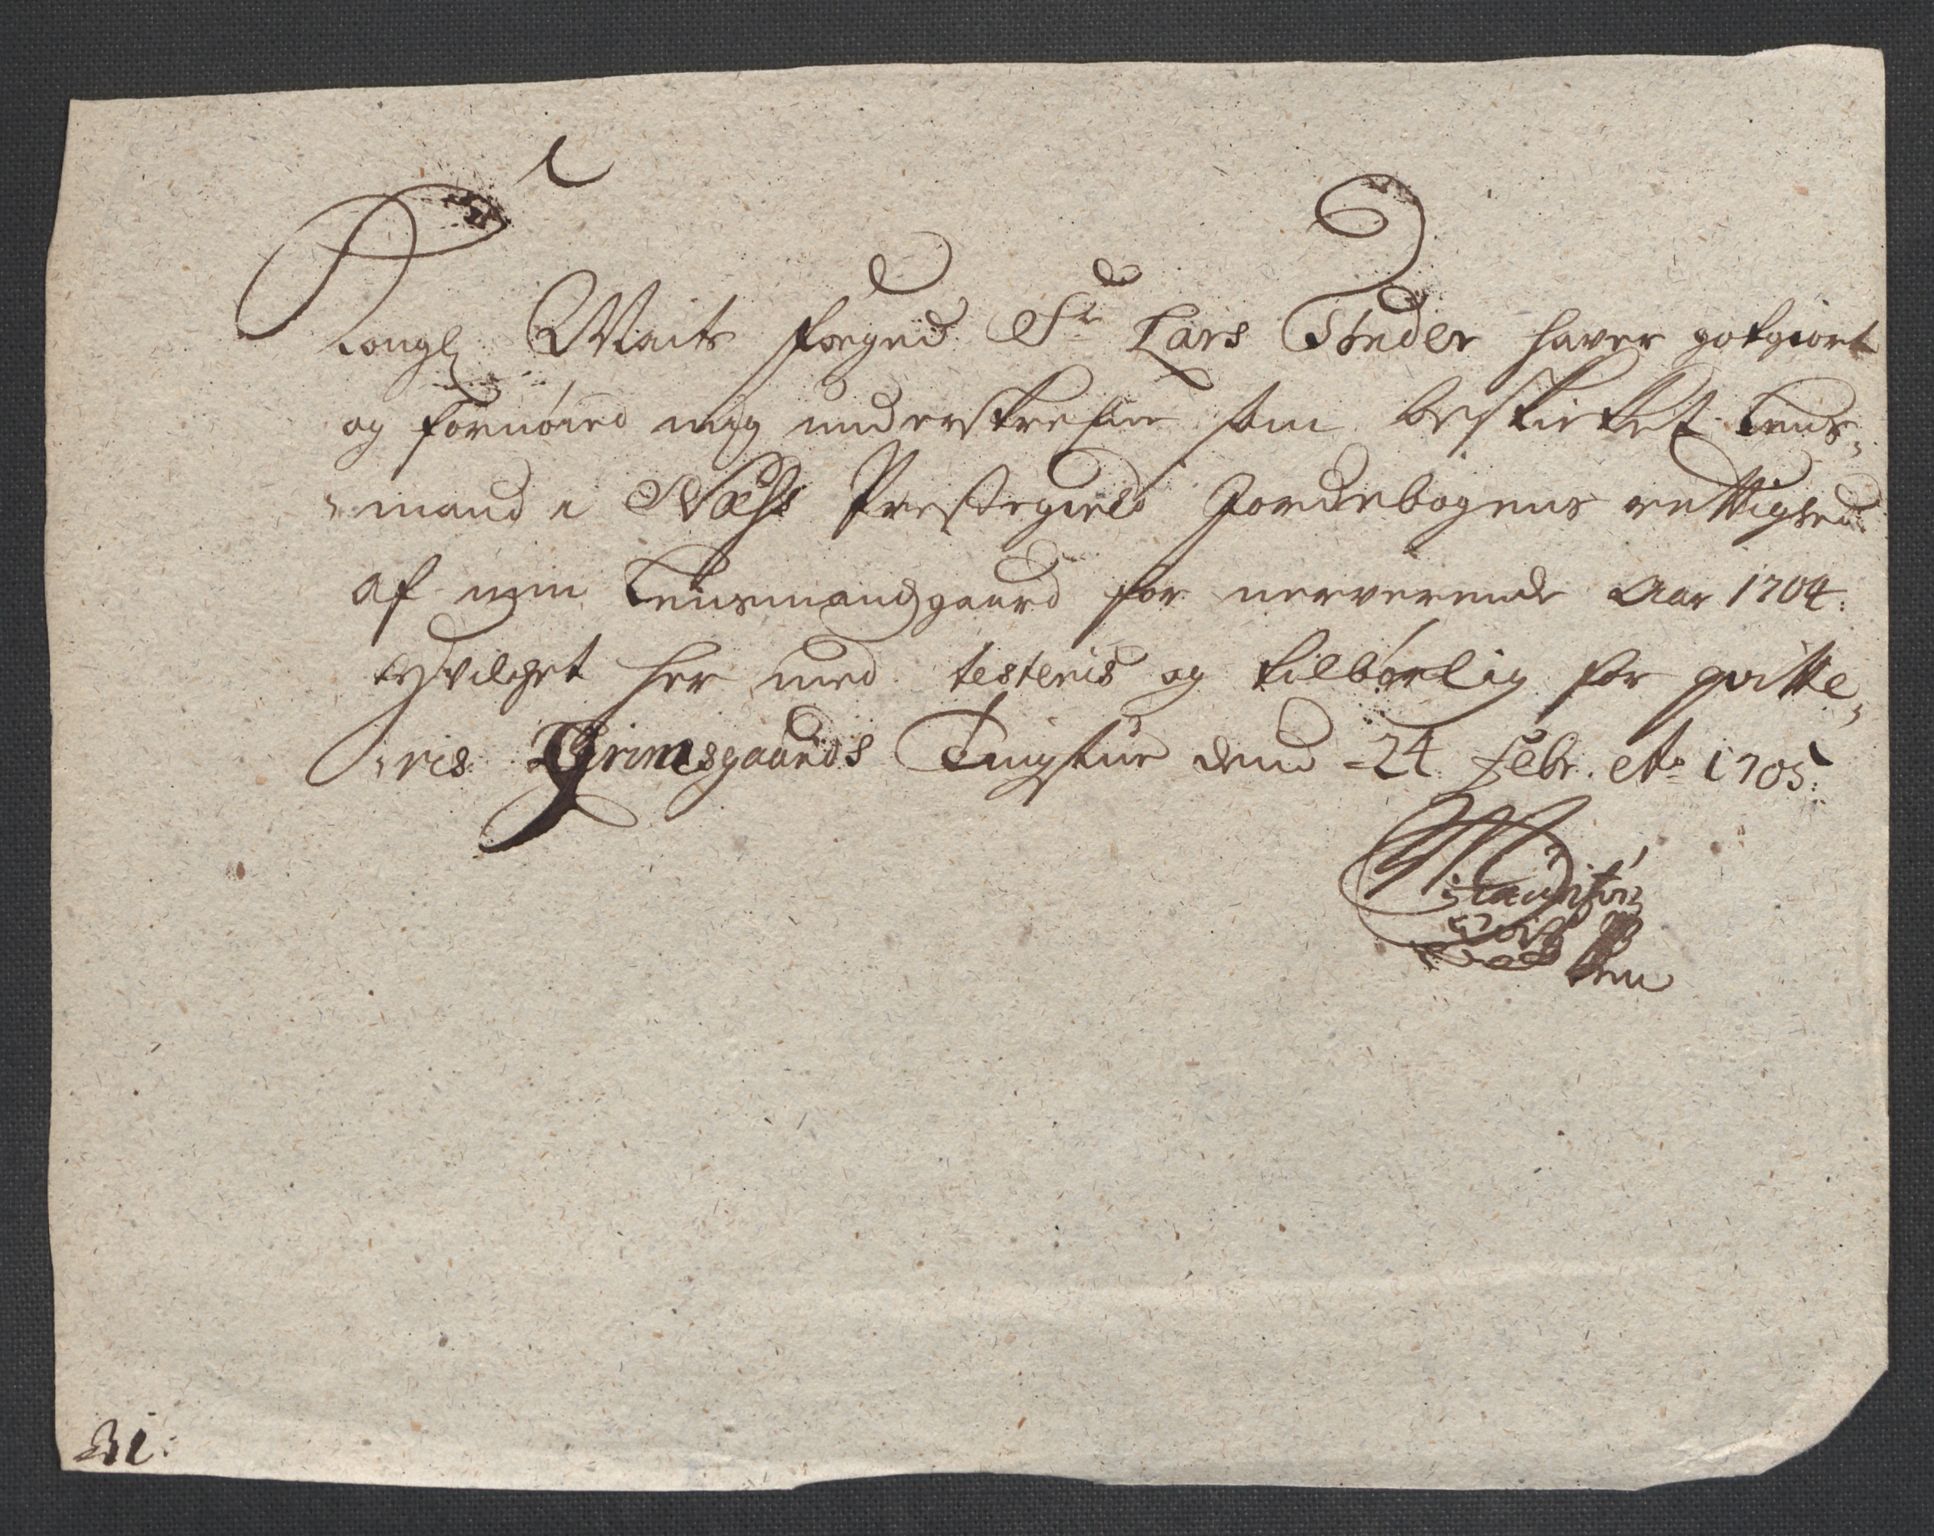 Kongl Maits foged Sr Lars Tønder haver gotgiort
og fornøied mig underskrefne som beskicket Lens-
-mand i Næss Prestegield Jordebogens rettighed
af min Lensmandsgaard for nerverende Aar 1704:
hvilchet her med testeris og tilbørlig for qvitte-
-ris. Grimsgaards Tingstue dend 24 Febr. Ao 1705:
31: